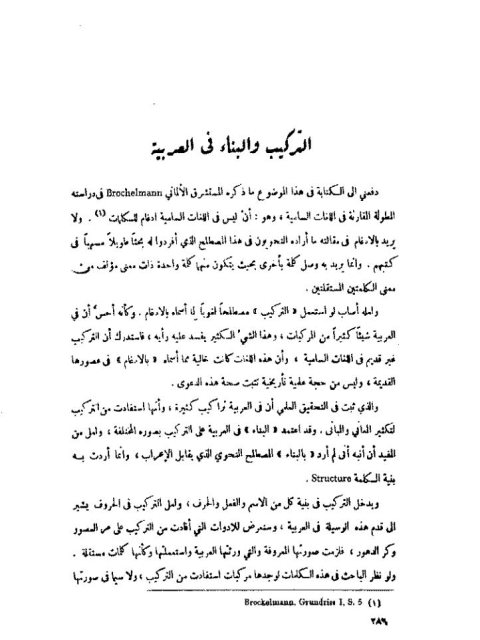 التركيب والبناء فى العربية
دفعني الى الكتابة في هذا الموضوع ما ذكره المستشرق الألماني Brochelmann في دراسته
المطولة المقارنة في اللغات السامية ، وهو : أن ليس في اللغات السامية ادغام للكلمات (١) . ولا
يريد بالادغام في مقالته ما أراده النحويون في هذا المصطلح الذي أفردوا له بحثاً طويلاً مسهباً في
كتبهم . وانما يريد به وصل كلمة بأخرى بحيث يتكون منهما كلمة واحدة ذات معنى مؤلف من
معنى الكلمتين المستقلتين .
ولعله أصاب لو استعمل « التركيب » مصطلحاً لغوياً لما أسماه بالادغام . وكأنه أحس أن في
العربية شيئاً كثيراً من المركبات ، وهذا الشيء الكثير يفسد عليه رأيه ، فاستدرك أن التركيب
غير قديم في اللغات السامية ، وأن هذه اللغات كانت خالية مما أسماه « بالادغام » في عصورها
القديمة ، وليس من حجة علمية تأريخية تثبت صحة هذه الدعوى .
والذي ثبت في التحقيق العلمي أن في العربية تراكيب كثيرة ، وأنها استفادت من التركيب
لتكثير المعاني والمباني . وقد اعتمد « البناء » في العربية على التركيب بصوره المختلفة ، ولعل من
المفيد أن أنبه أني لم أرد « بالبناء » المصطلح النحوي الذي يقابل الإعراب ، وانما أردت بـه
بنية الكلمة Structure .
ويدخل التركيب في بنية كل من الاسم والفعل والحرف ، ولعل التركيب في الحروف يشير
الى قدم هذه الوسيلة في العربية ، وسنعرض للادوات التي أفادت من التركيب على مر العصور
وكر الدهور ، فلزمت صورتها المعروفة والتي ورثتها العربية واستعملتها وكأنها كلمات مستقلة .
ولو نظر الباحث في هذه الكلمات لوجدها مركبات استفادت من التركيب ، ولا سيما في صورتها
(١) Brockelmann, Grundriss I, S. 5
٢٨٦